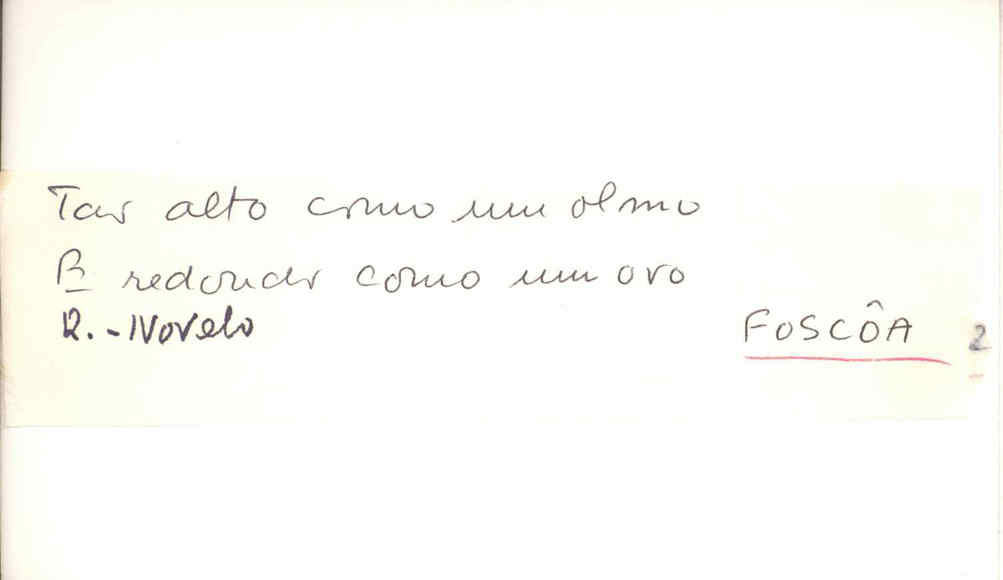 Tão alto como um olmo
E redondo como um ovo
R. - Novelo
FOSCÔA 2